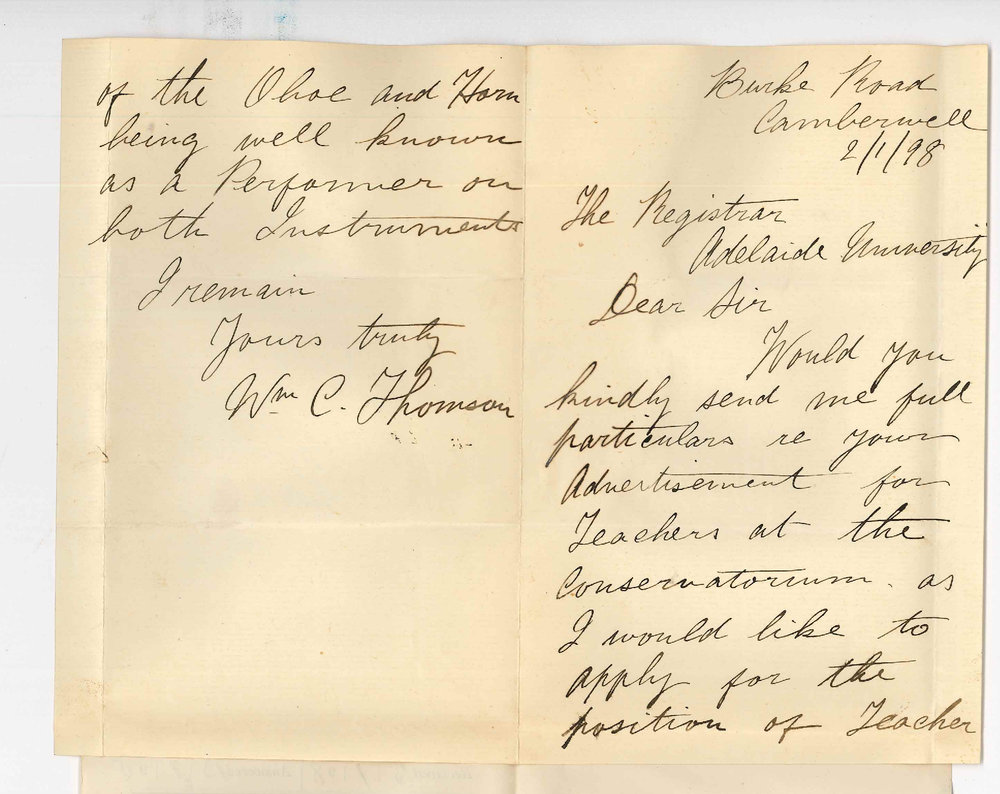 Burke Road
Camberwell
2/1/98
The Registrar
Adelaide University
Dear Sir
Would you
kindly send me full
particulars re your
Advertisement for
Teachers at the
Conservatorium. as
I would like to
apply for the
position of Teacher
of the Oboe and Horn
being well known
as a Performer on
both Instruments
I remain
Yours truly
Wm C. Thomson